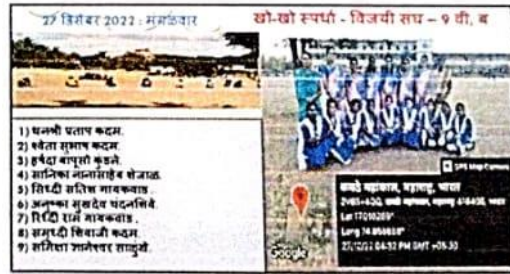 27 डिसेंबर 2022 : मंगळवार
खो-खो स्पर्धा - विजयी संघ – 9 वी, ब
1) धनश्री प्रताप कदम.
2) श्वेता सुभाष कदम.
3) हर्षदा बापूसो कुंडले.
4) सानिका नानासाहेब शेजाळ.
5) सिध्दी सतिश गायकवाड.
6) अनुष्का सुखदेव चंदनशिवे.
7) रिध्दी राम गायकवाड.
8) समृध्दी शिवाजी कदम.
9) समिक्षा ज्ञानेश्वर साळुंखे.
GPS Map Camera
कवठे महांकाळ, महाराष्ट्र, भारत
महाराष्ट्र 416405, भारत
Lat
Long
27/12/22 04:52 PM GMT +05:30
Google